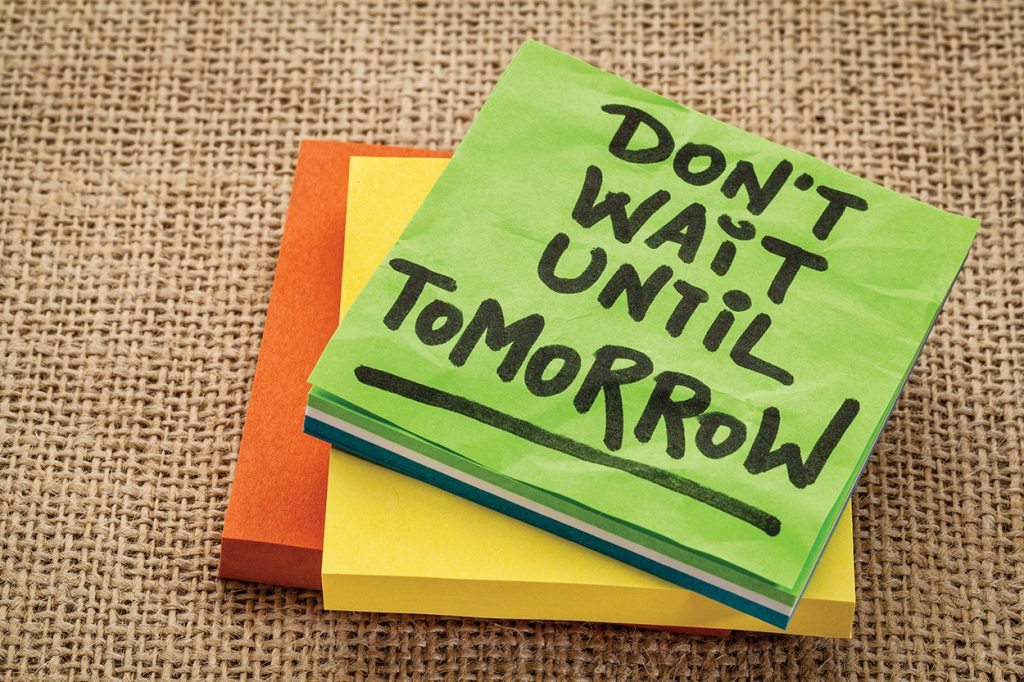 DON'T
WAiT
UNTiL
ToMORROW